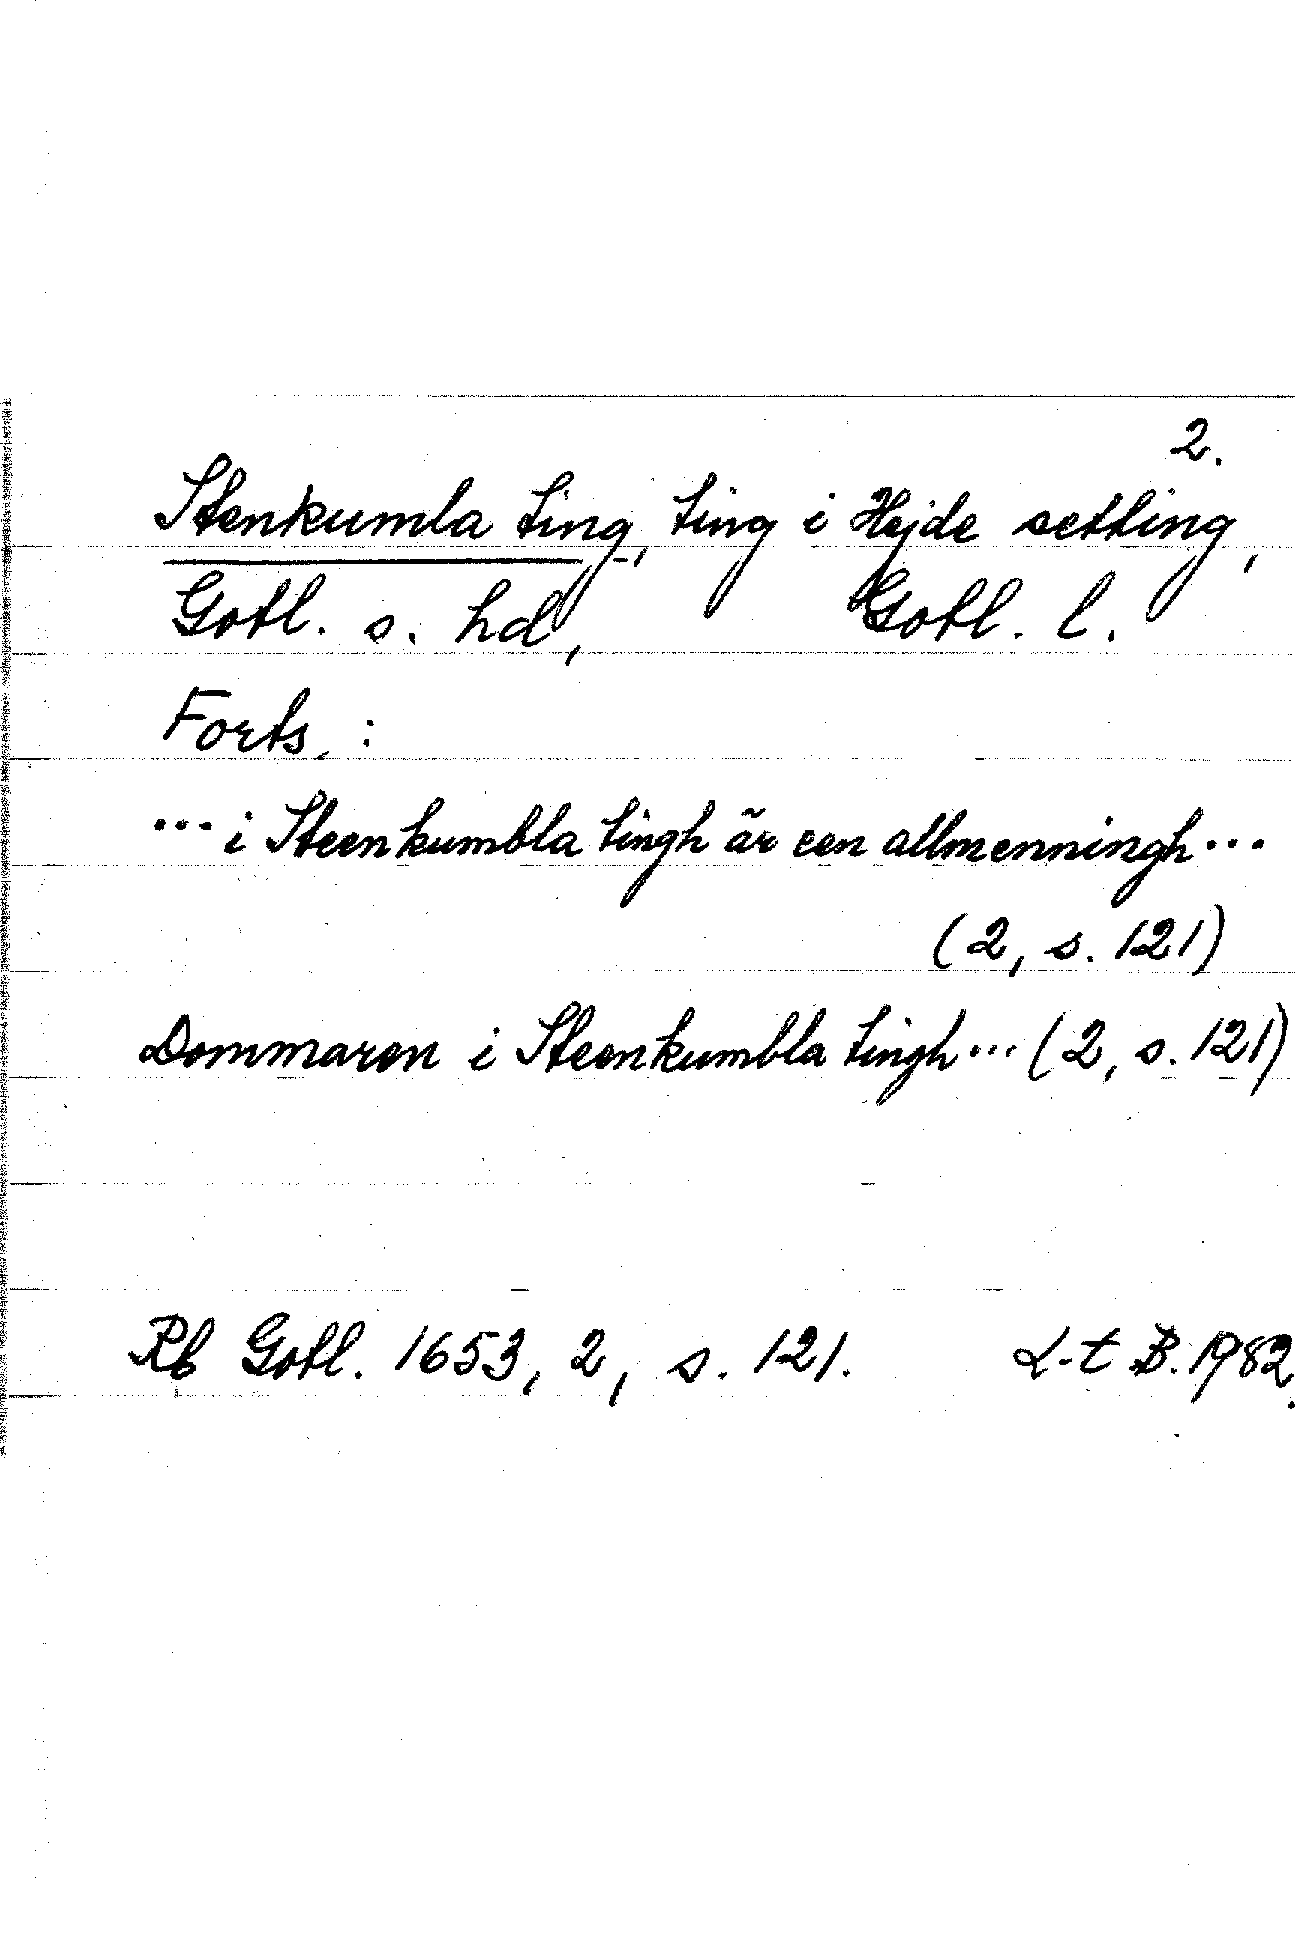 2.
Stenkumla ting, ting i Hejde setting,
Gotl. s. hd, Gotl. l.
Forts. :
... i Steenkumbla tingh är een allmenningh ...
(2, s. 121)
Dommaren i Steenkumbla tingh ... (2, s. 121)
Rb Gotl. 1653, 2, s. 121. L-t B. 1982.